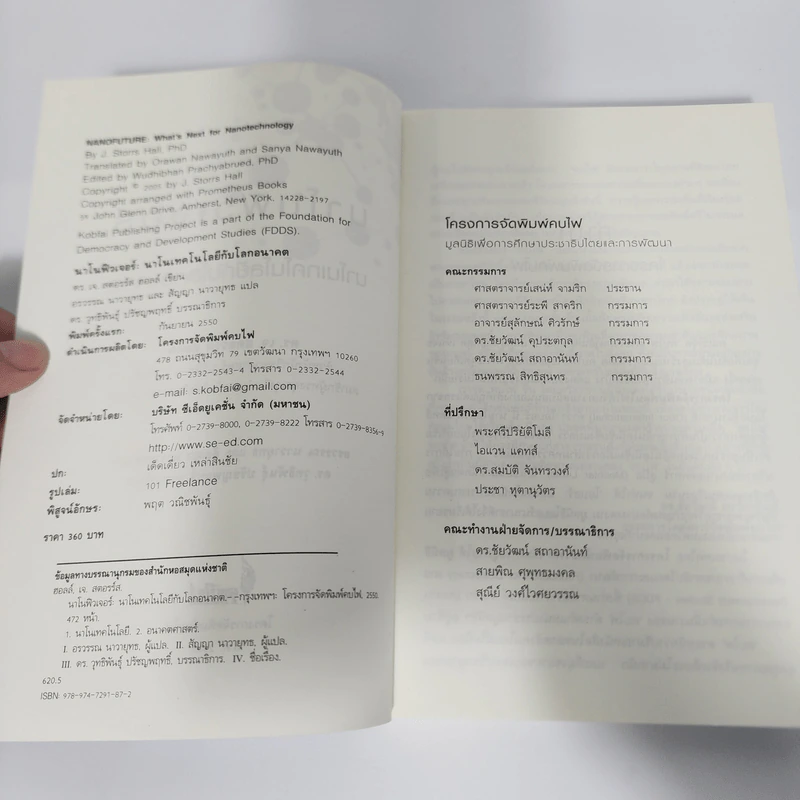 NANOFUTURE: What's Next for Nanotechnology
By J. Storrs Hall, PhD
Translated by Orawan Nawayuth and Sanya Nawayuth
Edited by Wudhibhan Prachyabrued, PhD
Copyright © by J. Storrs Hall
Copyright arranged with Prometheus Books
59 John Glenn Drive, Amherst, New York, 14228-2197
Kobfai Publishing Project is a part of the Foundation for
Democracy and Development Studies (FDDS).
นาโนฟิวเจอร์: นาโนเทคโนโลยีกับโลกอนาคต
ดร. เจ สตอร์รส์ ฮอลล์ เขียน
อรวรรณ นาวายุทธ และ สัญญา นาวายุทธ แปล
ดร. วุทธิพันธุ์ ปรัชญพฤทธิ์ บรรณาธิการ
พิมพ์ครั้งแรก: กันยายน 2550
ดำเนินการผลิตโดย: โครงการจัดพิมพ์คบไฟ
478 ถนนสุขุมวิท 79 เขตวัฒนา กรุงเทพฯ 10260
โทร. 0-2332-2543-4 โทรสาร 0-2332-2544
e-mail: s.kobfai@gmail.com
จัดจำหน่ายโดย: บริษัท ซีเอ็ดยูเคชั่น จำกัด (มหาชน)
โทรศัพท์ 0-2739-8000, 0-2739-8222 โทรสาร 0-2739-8356-9
http://www.se-ed.com
ปก: เด็ดเดี่ยว เหล่าสินชัย
รูปเล่ม: 101 Freelance
พิสูจน์อักษร: พฤต วณิชพันธุ์
ราคา 360 บาท
ข้อมูลทางบรรณานุกรมของสำนักหอสมุดแห่งชาติ
ฮอลล์, เจ. สตอรร์ส.
นาโนฟิวเจอร์: นาโนเทคโนโลยีกับโลกอนาคต.--กรุงเทพฯ: โครงการจัดพิมพ์คบไฟ, 2550.
472 หน้า.
1. นาโนเทคโนโลยี. 2. อนาคตศาสตร์.
I. อรวรรณ นาวายุทธ, ผู้แปล. II. สัญญา นาวายุทธ, ผู้แปล.
III. ดร. วุทธิพันธุ์ ปรัชญพฤทธิ์, บรรณาธิการ. IV. ชื่อเรื่อง.
620.5
ISBN: 978-974-7291-87-2
โครงการจัดพิมพ์คบไฟ
มูลนิธิเพื่อการศึกษาประชาธิปไตยและการพัฒนา
คณะกรรมการ
ศาสตราจารย์เสน่ห์ จามริก ประธาน
ศาสตราจารย์ระพี สาคริก กรรมการ
อาจารย์สุลักษณ์ ศิวรักษ์ กรรมการ
ดร.ชัยวัฒน์ คุประตกุล กรรมการ
ดร.ชัยวัฒน์ สถาอานันท์ กรรมการ
ธนพรรณ สิทธิสุนทร กรรมการ
ที่ปรึกษา
พระศรีปริยัติโมลี
ไอแวน แคทส์
ดร.สมบัติ จันทรวงศ์
ประชา หุตานุวัตร
คณะทำงานฝ่ายจัดการ/บรรณาธิการ
ดร.ชัยวัฒน์ สถาอานันท์
สายพิณ ศุพุทธมงคล
สุณีย์ วงศ์ไวศยวรรณ